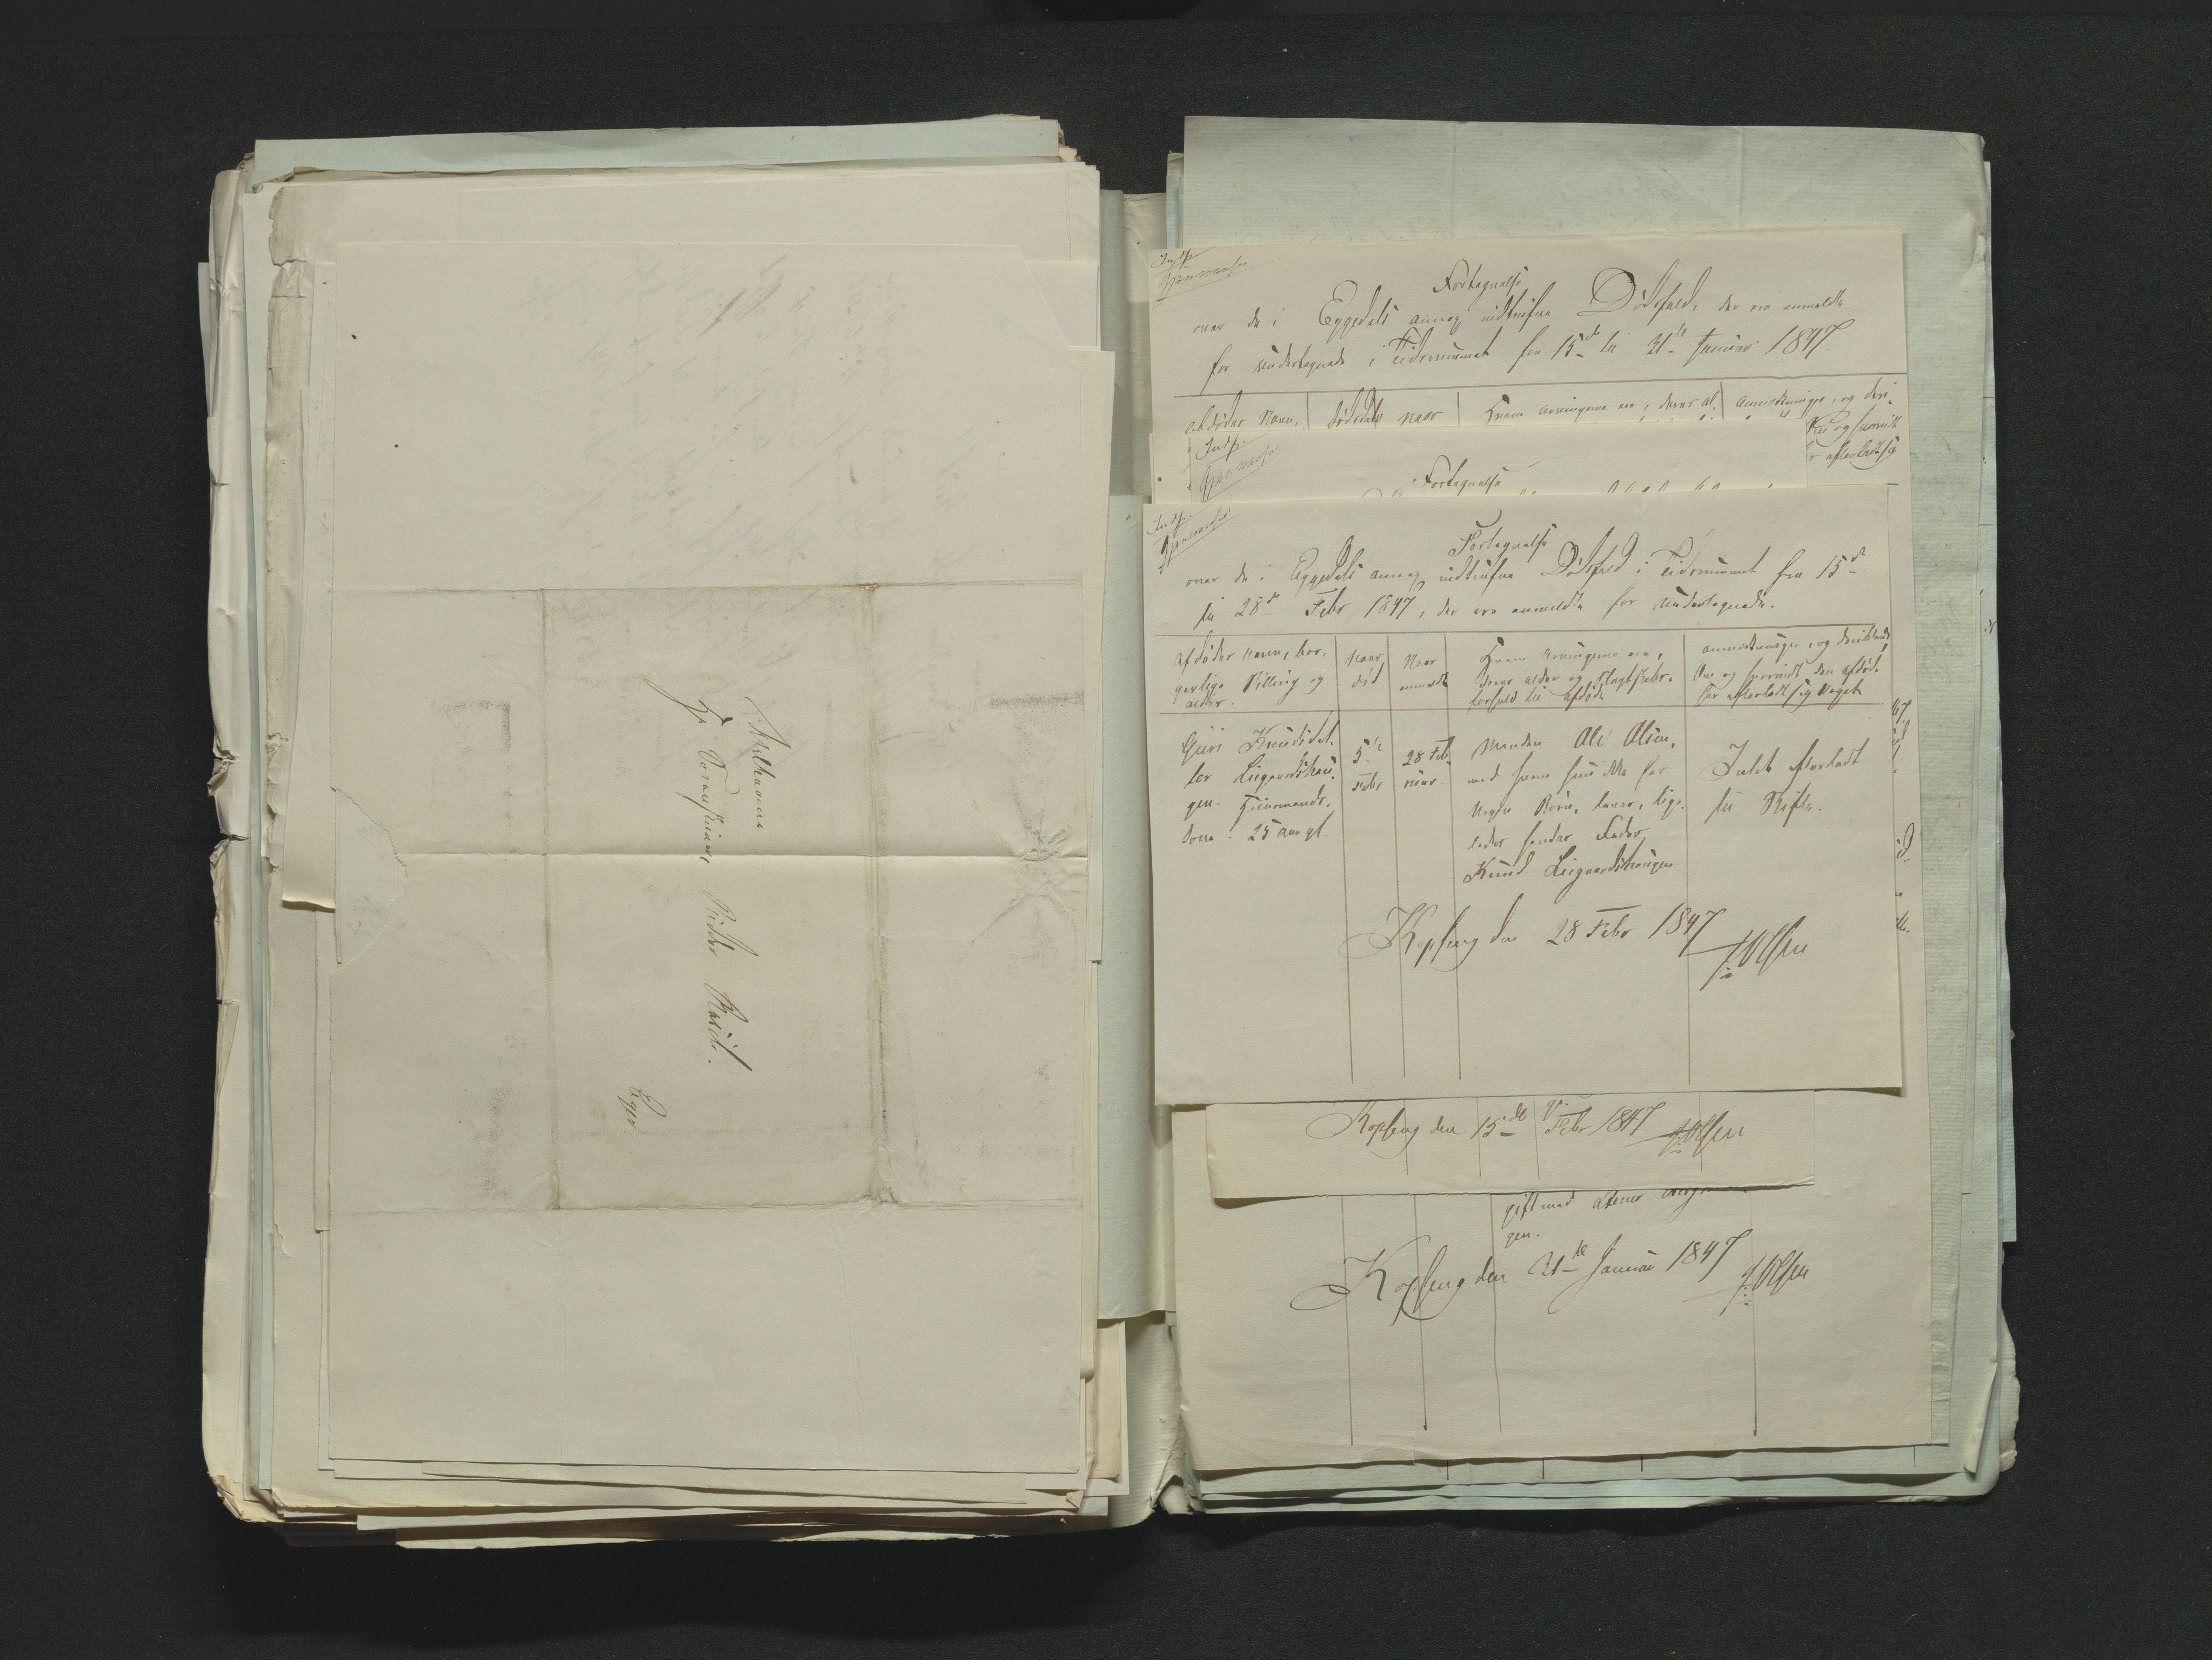 Velbaarne
Hr Sorenskriver, Ridder
Eger
Indf.
Fortegnelse
over de i Eggedals annex indtrufne Dödsfald, der ere anmeldte
for undertegnede i Tidsrummet fra 15de til 31te Januar 1847.
Afdödes Navn,
Dödsdag
Naar
Hvem Arvingerne ere, deres al-
Anmerkninger, og deri-
Om og hvorvidt
efterladt sig
Indf.
Fortegnelse
Indf.
Fortegnelse
over de i Eggedals annex indtrufne Dödsfald i Tidsrummet fra 15de
til 28de Febr 1847, der ere anmeldte for undertegnede.
Afdödes Navn, bor-
gerlige Stilling og
alder.
Naar
död
Naar
anmeldt
Hvem Arvingerne ere,
deres alder og Slægtskabs-
forhold til Afdöde
Anmerkninger, og deriblandt
Om og hvorvidt den afdöde
har efterladt sig Noget
Guri Knudsdat-
ter
gen. Huusmands-
kone. 25 aar gl.
5te
Febr
28 Feb-
ruar.
Manden Ole Olsen,
med hvem hun ikke har
Nogen Börn, lever, lige-
ledes hendes Fader
Knud
Intet efterladt
til Skifte.
Kopseng den 28 Febr 1847
Olsen
Kopseng den 15de Febr 1847
Olsen
gift med
gen.
Kopseng den 31te Januar 1847
Olsen